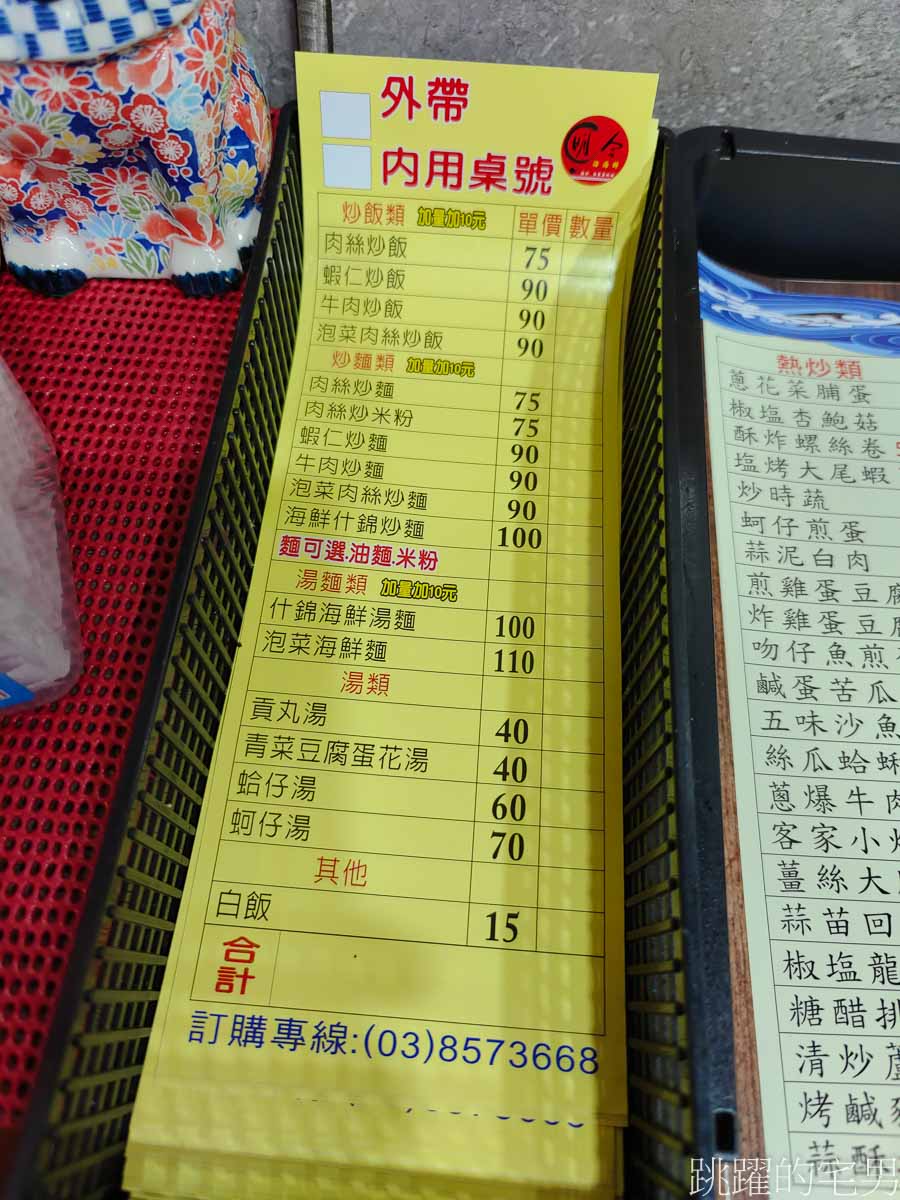 外帶
內用桌號
炒飯類 加量加10元 單價 數量
肉絲炒飯 75
蝦仁炒飯 90
牛肉炒飯 90
泡菜肉絲炒飯 90
炒麵類 加量加10元
肉絲炒麵 75
肉絲炒米粉 75
蝦仁炒麵 90
牛肉炒麵 90
泡菜肉絲炒麵 90
海鮮什錦炒麵 100
麵可選.油麵.米粉
湯麵類 加量加10元
什錦海鮮湯麵 100
泡菜海鮮麵 110
湯類
貢丸湯 40
青菜豆腐蛋花湯 40
蛤仔湯 60
蚵仔湯 70
其他
白飯 15
合計
訂購專線:(03)8573668
熱炒類
蔥花菜脯蛋
椒塩杏鮑菇
酥炸螺絲卷
塩烤大尾蝦
炒時蔬
蚵仔煎蛋
蒜泥白肉
煎雞蛋豆腐
炸雞蛋豆腐
吻仔魚煎
鹹蛋苦瓜
五味沙魚
絲瓜蛤
蔥爆牛肉
客家小炒
薑絲大
蒜苗回
椒塩龍
糖醋排
清炒
烤鹹
蒜酥
跳躍的宅男